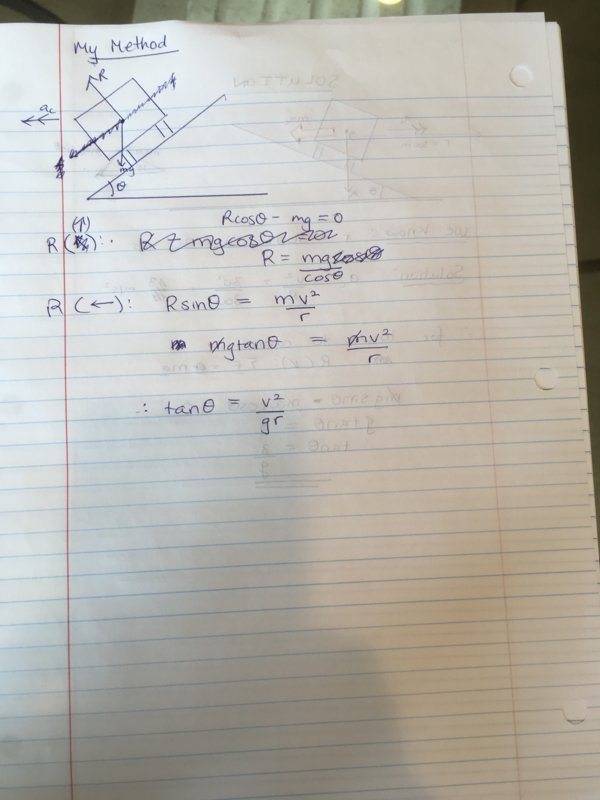 My Method
R
ac
mg
θ
Rcosθ - mg = 0
R (↑): 
R = mg
cosθ
R (←): Rsinθ = mv²
r
mgtanθ = mv²
r
∴ tanθ = v²
gr